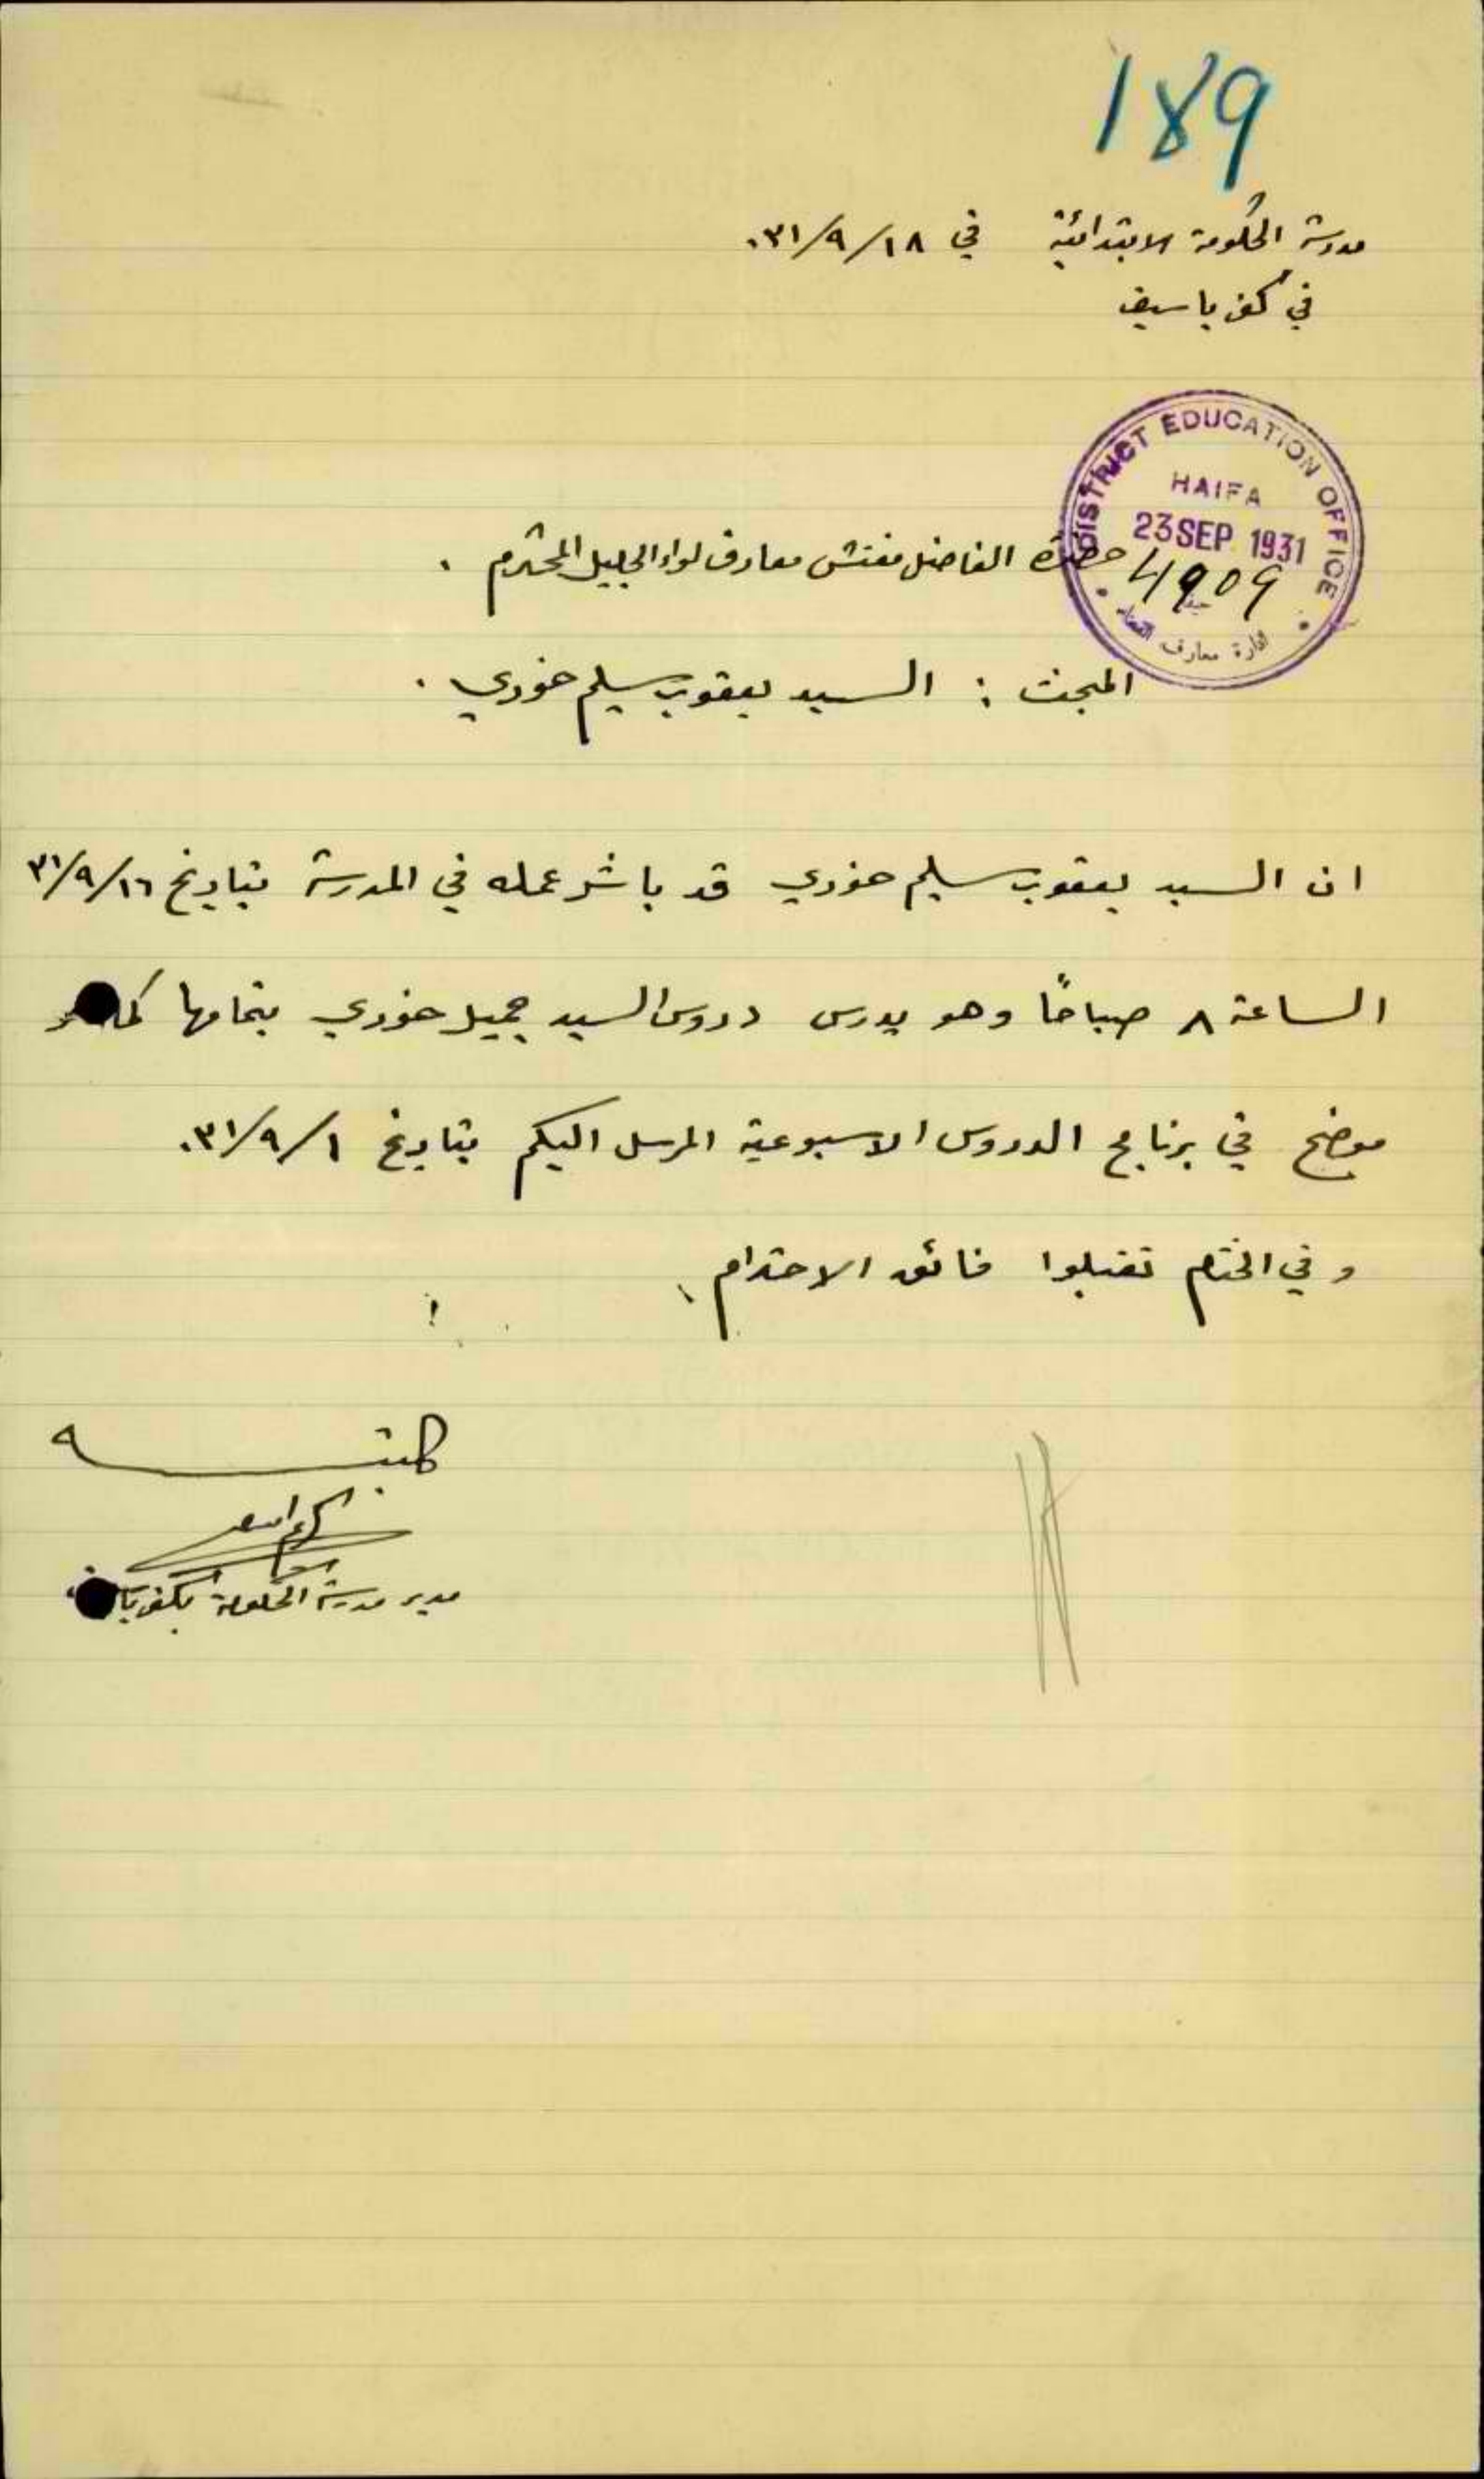 189
مدرسة الحكومة الابتدائية في ١٨/٩/٣١.
في كفر ياسيف
DISTRICT EDUCATION OFFICE
HAIFA
23 SEP 1931
4909
حيفا
ادارة معارف القضاء
حضرة الفاضل مفتش معارف لواء الجليل المحترم .
المبحث : السيد يعقوب سليم خوري .
ان السيد يعقوب سليم خوري قد باشر عمله في المدرسة بتاريخ ١٦/٩/٣١
الساعة ٨ صباحًا وهو يدرس دروس السيد جميل خوري بتمامها كما
موضح في برنامج الدروس الاسبوعية المرسل اليكم بتاريخ ١/٩/٣١.
وفي الختام تقبلوا فائق الاحترام
كتبه
مدير مدرسة الحكومة بكفر